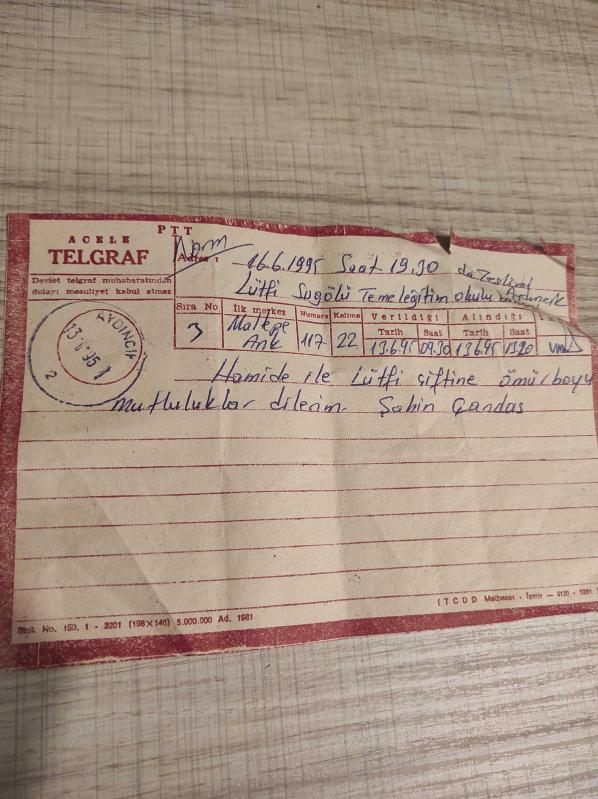 PTT
ACELE
TELGRAF
Devlet telgraf muhaberatından
dolayı mesuliyet kabul etmez
Adres :
16.6.1995 Saat 19.30 da Teslim
Lütfi Sugölü Temeleğitim okulu
Sıra No İlk merkez Numara Kelime Verildiği Alındığı
Tarih Saat Tarih Saat
3 Maltepe Ank 117 22 13.6.95 09.30 13.6.95 1320
AYDINCIK
13.6.95
2
Hamide ile Lütfi çiftine ömürboyu
mutluluklar dilerim. Şahin Çandaş
Stok No. 150. 1 - 3201 (198×140) 5.000.000 Ad. 1981
(TCDD Matbaası - İzmir — 4120 - 1981